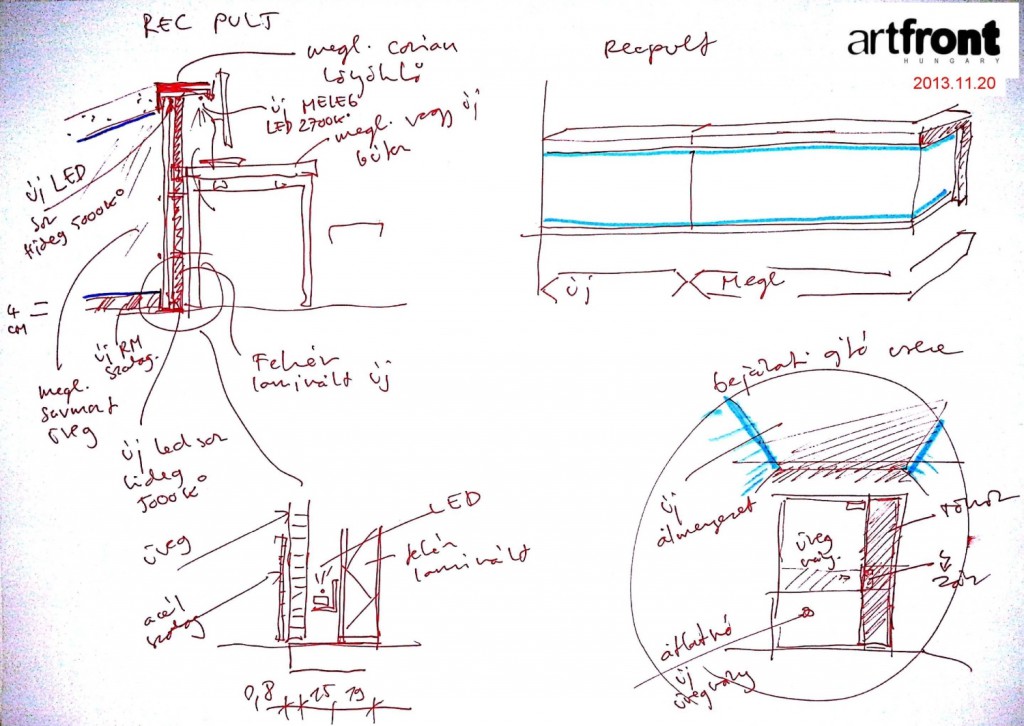 REC PULT
megl. corian
új MELEG
LED 2700K°
megl. vagy új
bútor
új LED
sor
Hideg 5000K°
4
CM
új RM
szalag.
megl.
savmart
üveg
Fehér
laminált új
új led sor
hideg
5000K°
üveg
acél
szalag
LED
fehér
laminált
0,8
15
19
Recpult
artfront
HUNGARY
2013.11.20
új
Megl
bejárati ajtó csere
új
álmenyezet
üveg
tükör
zár
átlátható
új